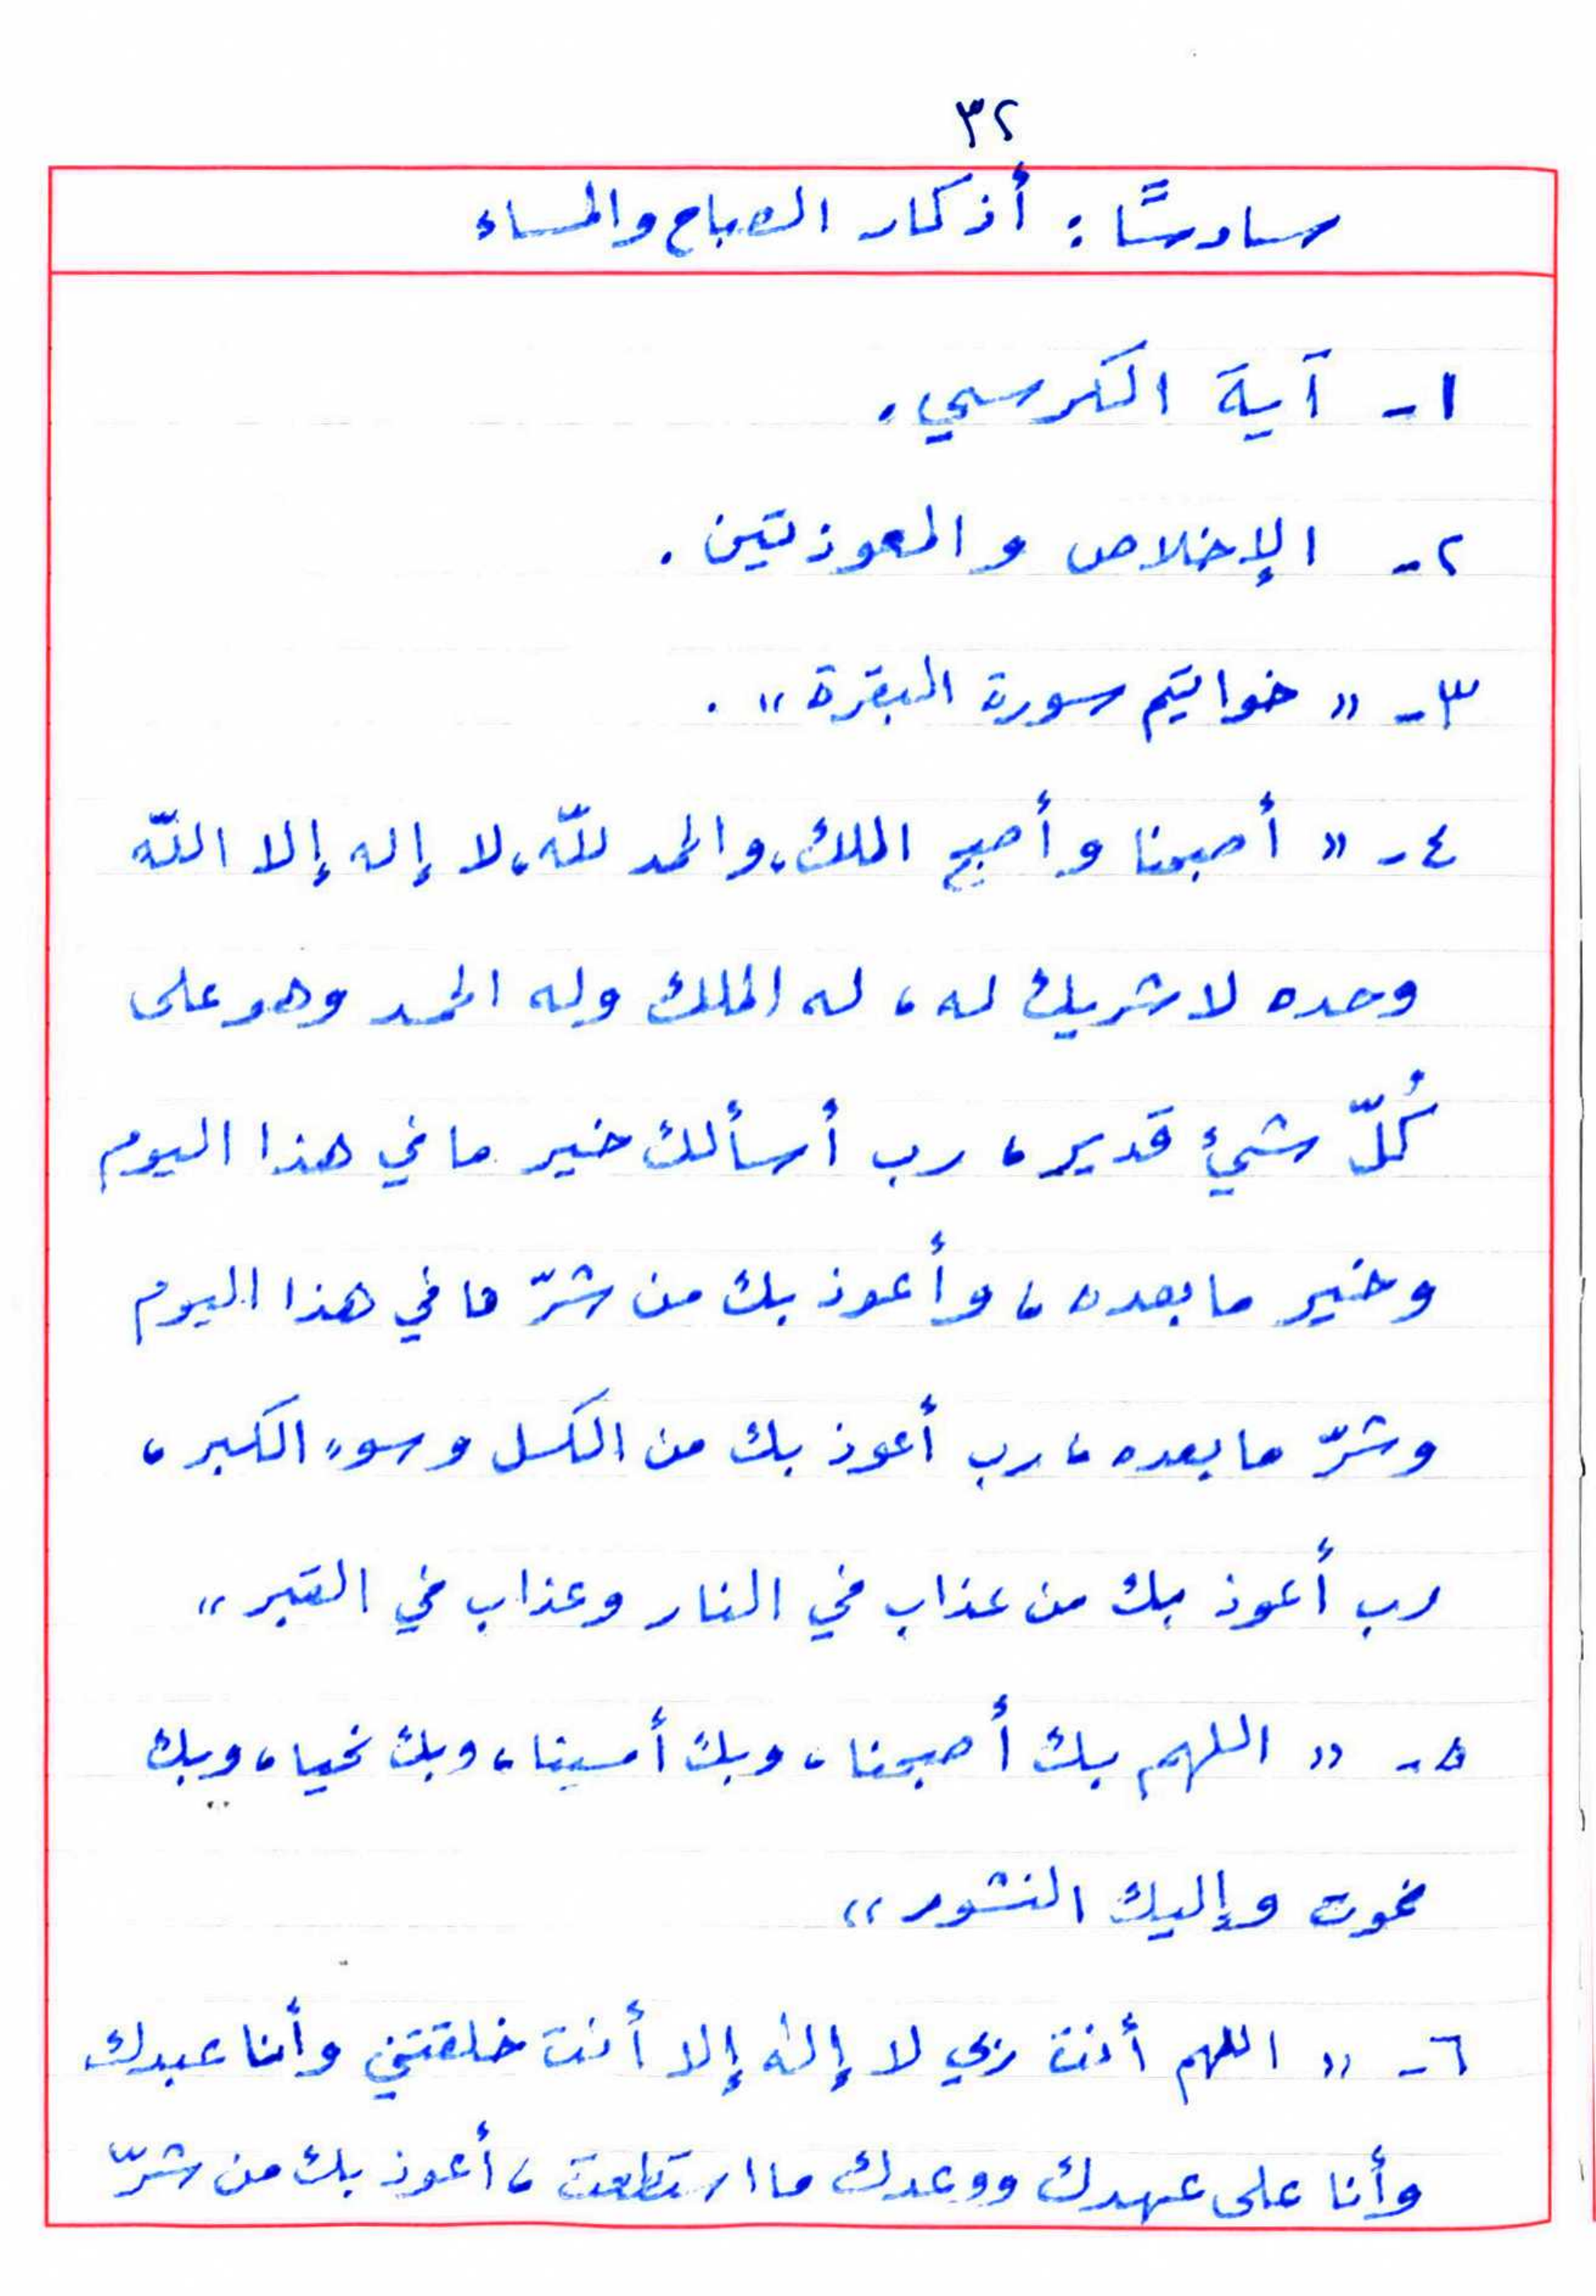 ٣٢
سادسًا: أذكار الصباح والمساء
١- آية الكرسي.
٢- الإخلاص والمعوذتين.
٣- « خواتيم سورة البقرة ».
٤- « أصبحنا وأصبح الملك، والحمد للّه، لا إله إلا اللّه
وحده لا شريك له، له الملك وله الحمد وهو على
كُلّ شيئ قدير، رب أسألك خير ما في هذا اليوم
وخير ما بعده، وأعوذ بك من شرّ ما في هذا اليوم
وشرّ ما بعده، رب أعوذ بك من الكسل وسوء الكبر،
رب أعوذ بك من عذاب في النار وعذاب في القبر »
٥- « اللهم بك أصبحنا، وبك أمسينا، وبك نحيا، وبك
نموت وإليك النشور »
٦- « اللهم أنت ربي لا إله إلا أنت خلقتني وأنا عبدك
وأنا على عهدك ووعدك ما استطعت، أعوذ بك من شرّ